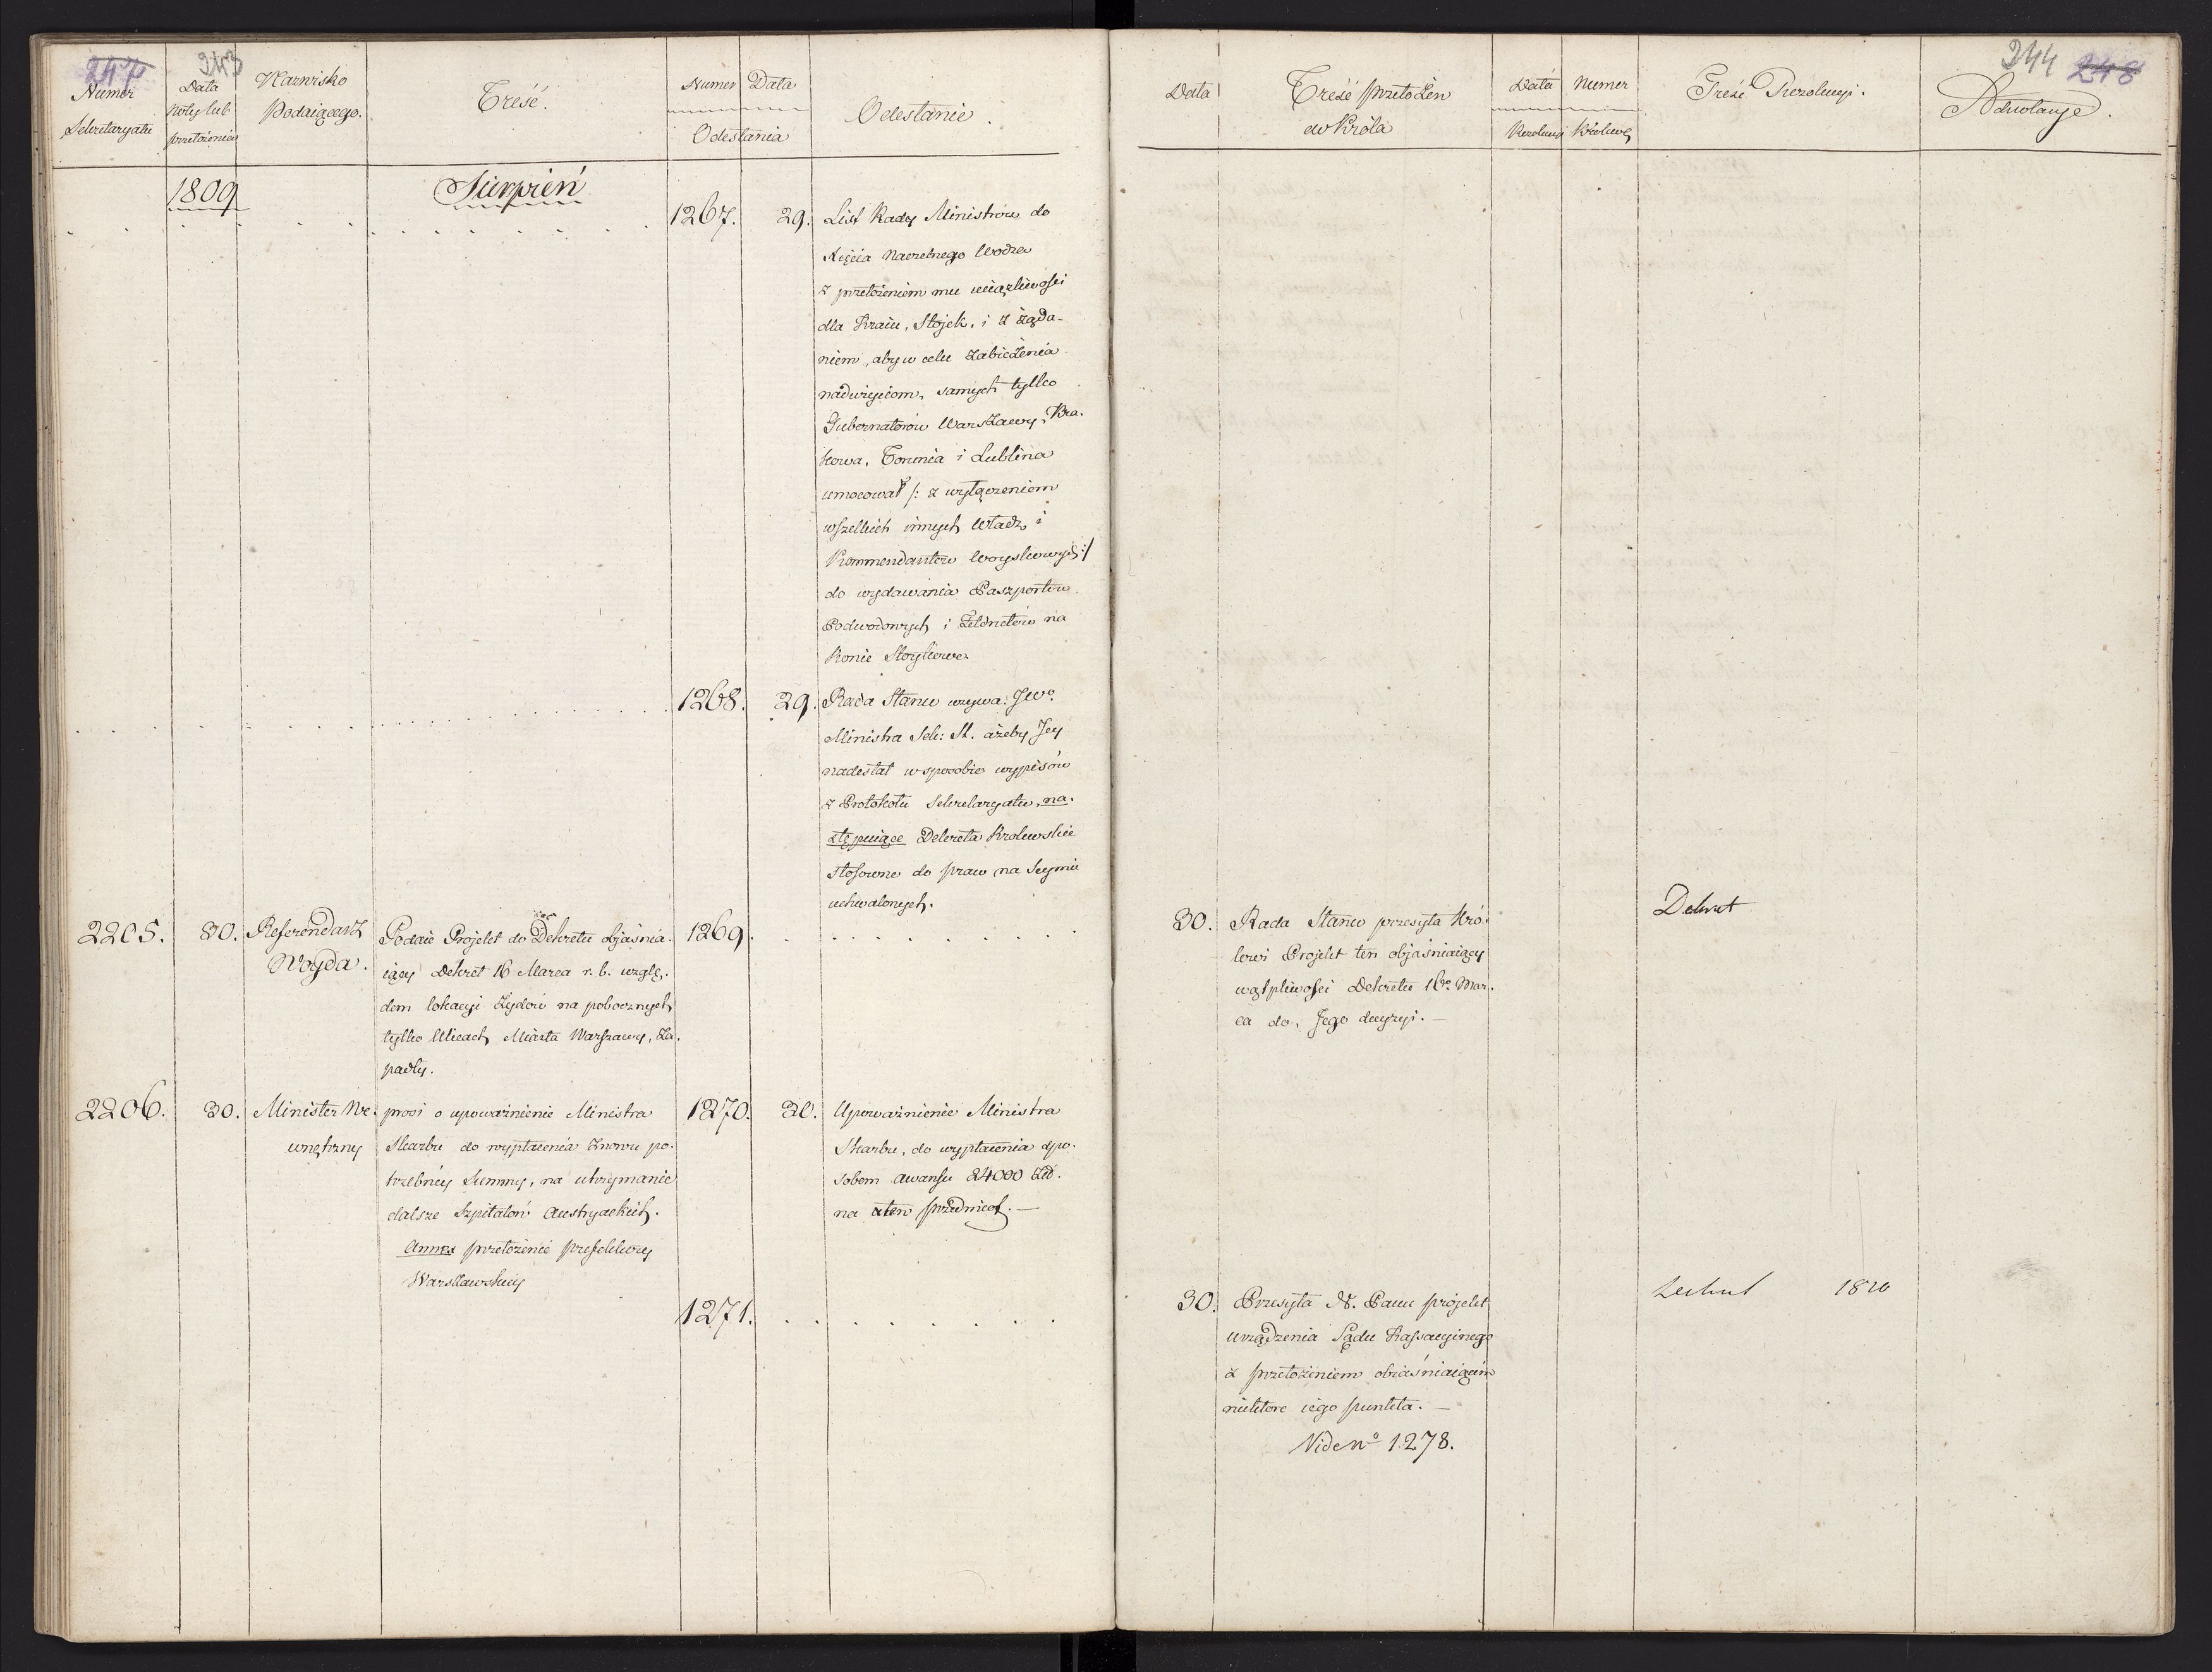 247 243
Numer
Sekretaryatu
Data
Noty lub
przełożenia
Nazwisko
Podaiącego.
Treść.
Numer Data
Odesłania
Odesłanie.
1809
Sierpień
1267. 29. List Rady Ministrów do
Xięcia Naczelnego Wodza
z przełożeniem mu uciążliwości
dla Kraiu, Stojek, i z żąda-
niem, aby w celu zabieżenia
nadużyciom, samych tylko
Gubernatorów Warszawy, Kra-
kowa, Torunia i Lublina
umocował /: z wyłączeniem
wszelkich innych Władz i
Kommendantów Woyskowych :/
do wydawania Paszportów
Podwodowych i na
Konie Stoykowe.
1268. 29. Rada Stanu wzywa JWo.
Ministra Sek: St. ażeby Jey
nadesłał w sposobie wypisów
z Protokołu Sekretaryatu, na-
stępuiące Dekreta Krolewskie
stosowne do praw na Seymie
uchwalonych.
2205. 30. Referendarz
Woyda.
Podaie Projekt do Dekretu objaśnia-
iący Dekret 16 Marca r. b. wzglę-
dem lokacyi Żydów na pobocznych
tylko Ulicach Miasta Warszawy, za-
padły.
1269.
2206. 30. Minister We-
wnętrzny
prosi o upoważnienie Ministra
Skarbu do wypłacenia znowu po-
trzebney Summy, na utrzymanie
dalsze Szpitalów Austryackich.
Annex przełożenie prefektury
Warszawskiey
1270. 30. Upoważnienie Ministra
Skarbu, do wypłacenia spo-
sobem awansu 24000 Zł.
na ten przedmiot. —
1271.
244 248
Data
Treść przełożeń
do Króla
Data Numer
Rezolucyi Królews.
Treść Rezolucyi.
Odwołanje.
30. Rada Stanu przesyła Kró-
lowi Projekt ten objaśniaiący
wątpliwości Dekretu 16o. Mar-
ca do Jego decyzyi. —
Dekret
30. Przesyła N. Panu projekt
urządzenia Sądu Kassacyinego
z przełożeniem obiaśniaiącém
niektóre iego punkta. —
Vide No 1278.
Dekret 1810